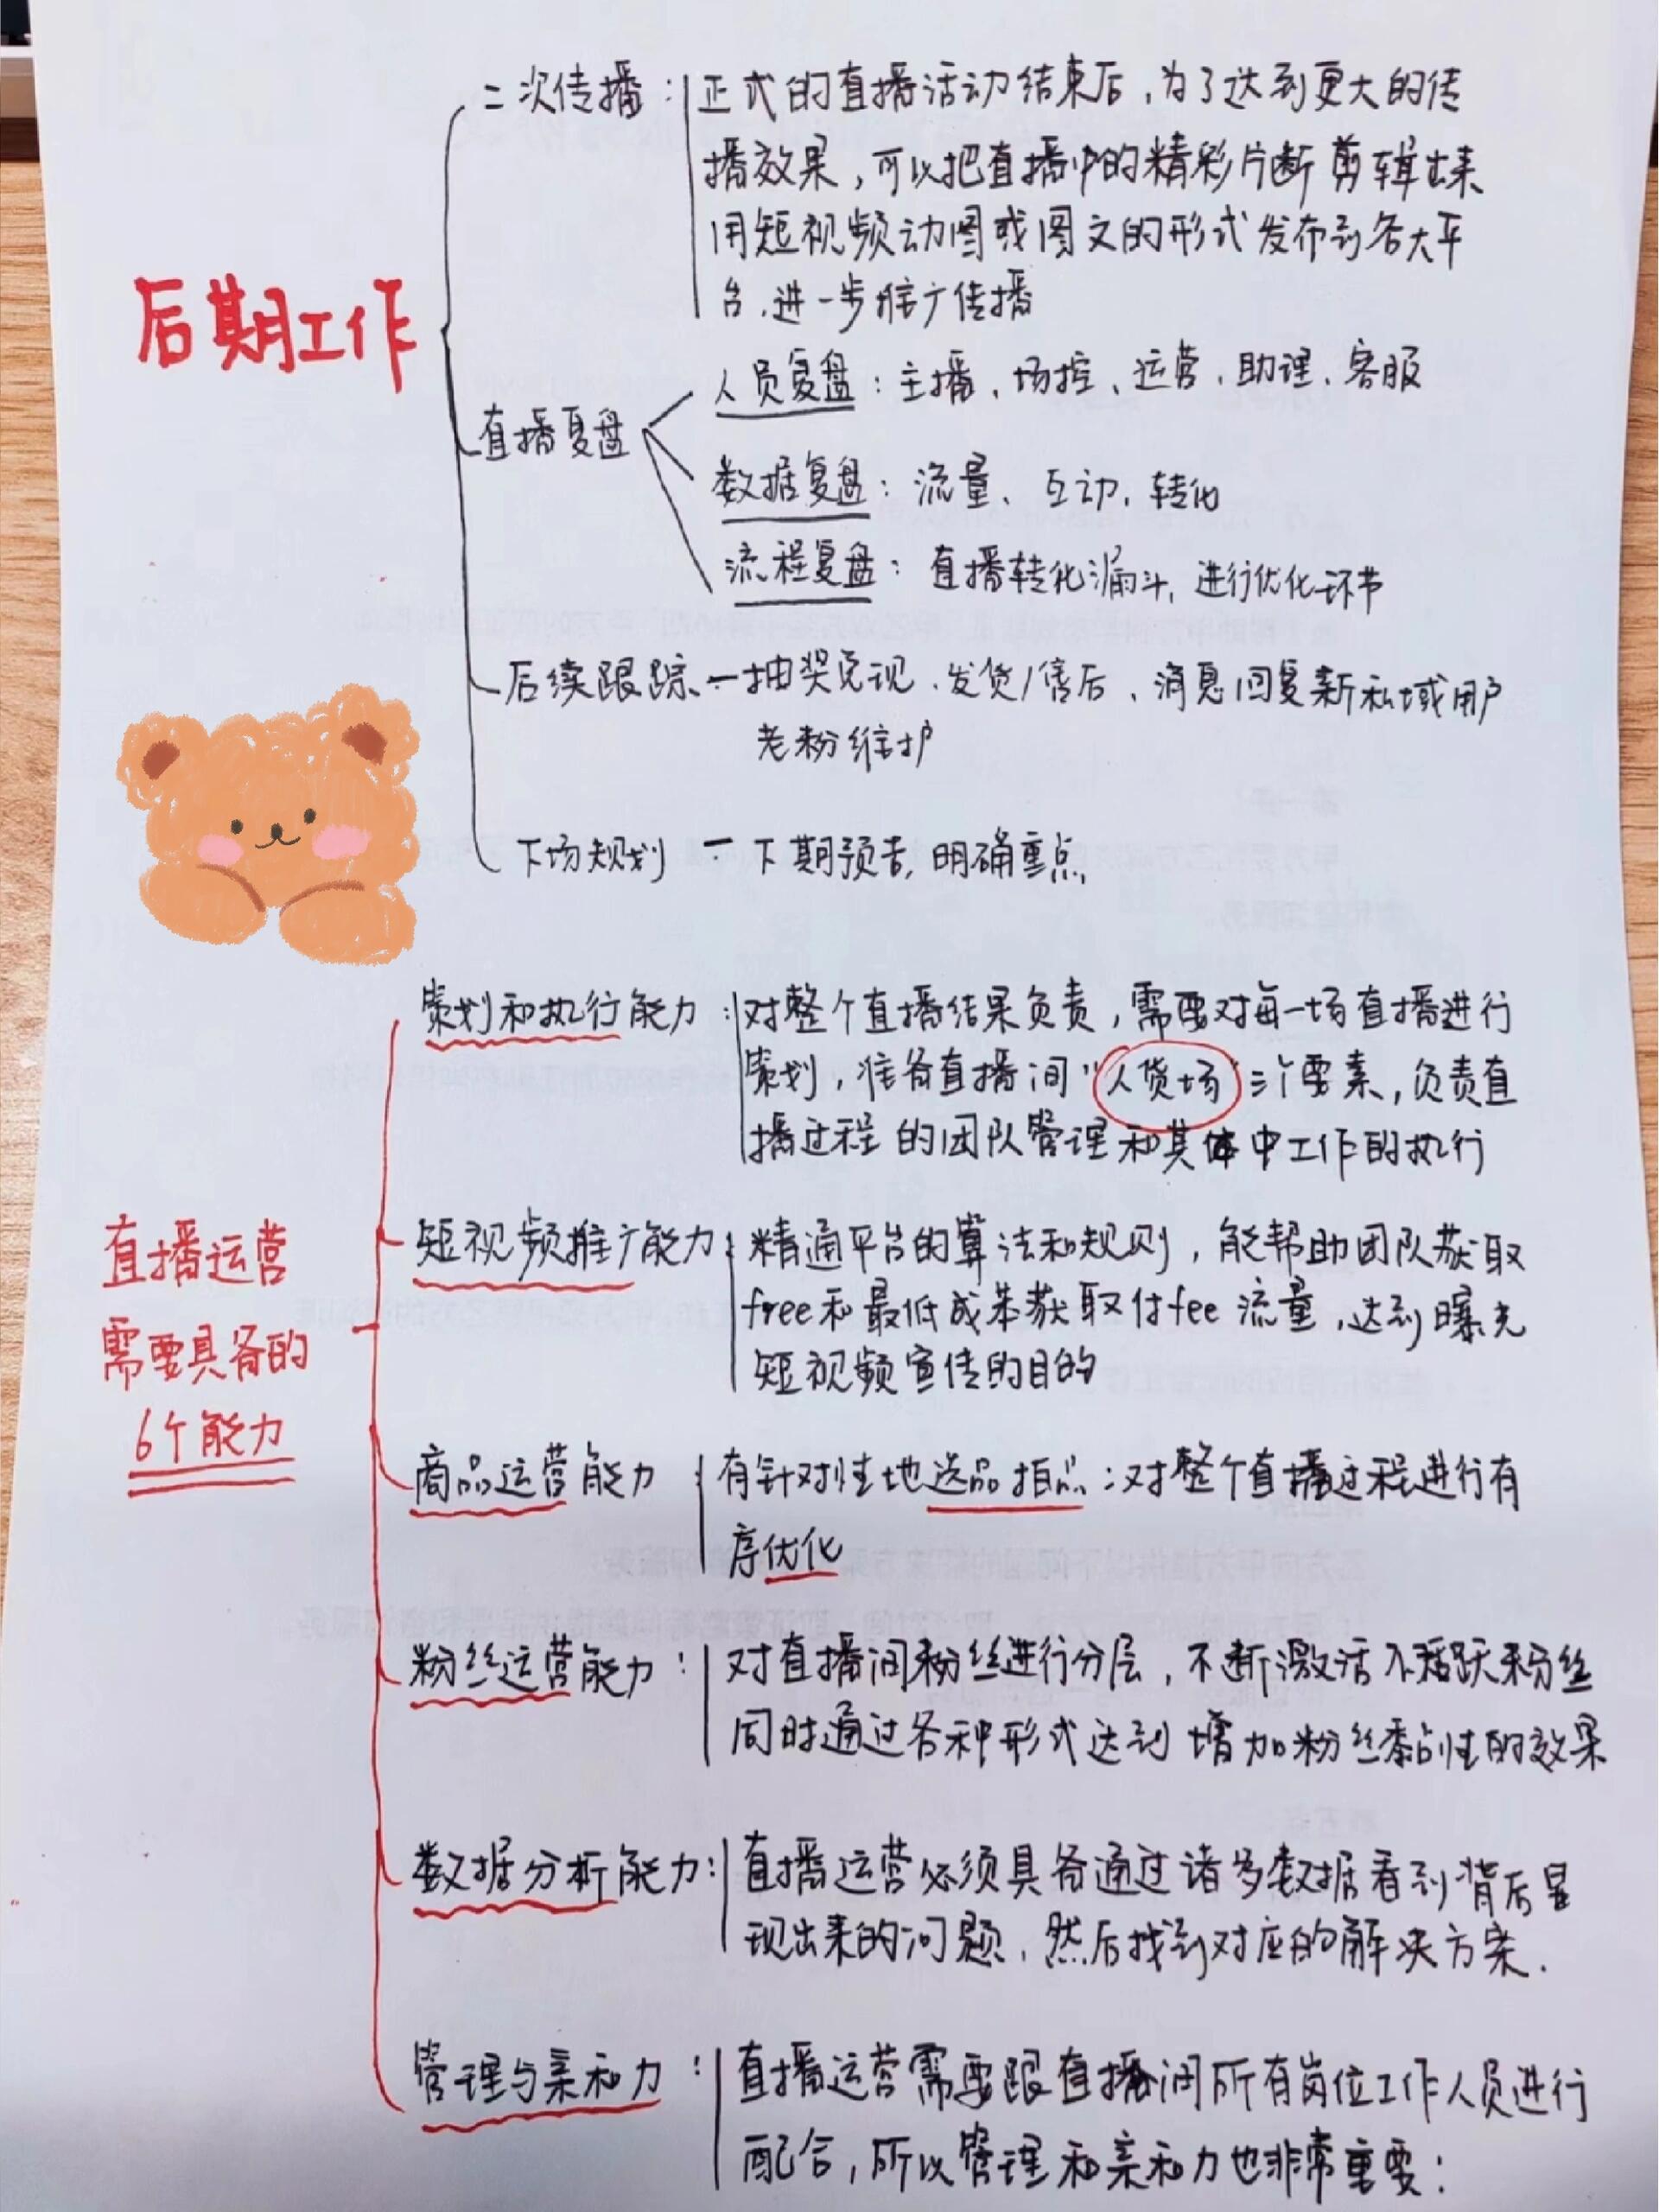 后期工作
二次传播：正式的直播活动结束后，为了达到更大的传
播效果，可以把直播中的精彩片断剪辑出来
用短视频动图或图文的形式发布到各大平
台，进一步推广传播
直播复盘
人员复盘：主播、场控、运营、助理、客服
数据复盘：流量、互动、转化
流程复盘：直播转化漏斗，进行优化环节
后续跟踪—抽奖兑现、发货/售后、消息回复新私域用户
老粉维护
下场规划—下期预告，明确重点
直播运营
需要具备的
6个能力
策划和执行能力：对整个直播结果负责，需要对每一场直播进行
策划，准备直播间“人货场”三个要素，负责直
播过程的团队管理和其体中工作的执行
短视频推广能力：精通平台的算法和规则，能帮助团队获取
free和最低成本获取付fee流量，达到曝光
短视频宣传的目的
商品运营能力：有针对性地选品拍品：对整个直播过程进行有
序优化
粉丝运营能力：对直播间粉丝进行分层，不断激活不活跃粉丝
同时通过各种形式达到增加粉丝黏性的效果
数据分析能力：直播运营必须具备通过诸多数据看到背后呈
现出来的问题，然后找到对应的解决方案.
管理与亲和力：直播运营需要跟直播间所有岗位工作人员进行
配合，所以管理和亲和力也非常重要；